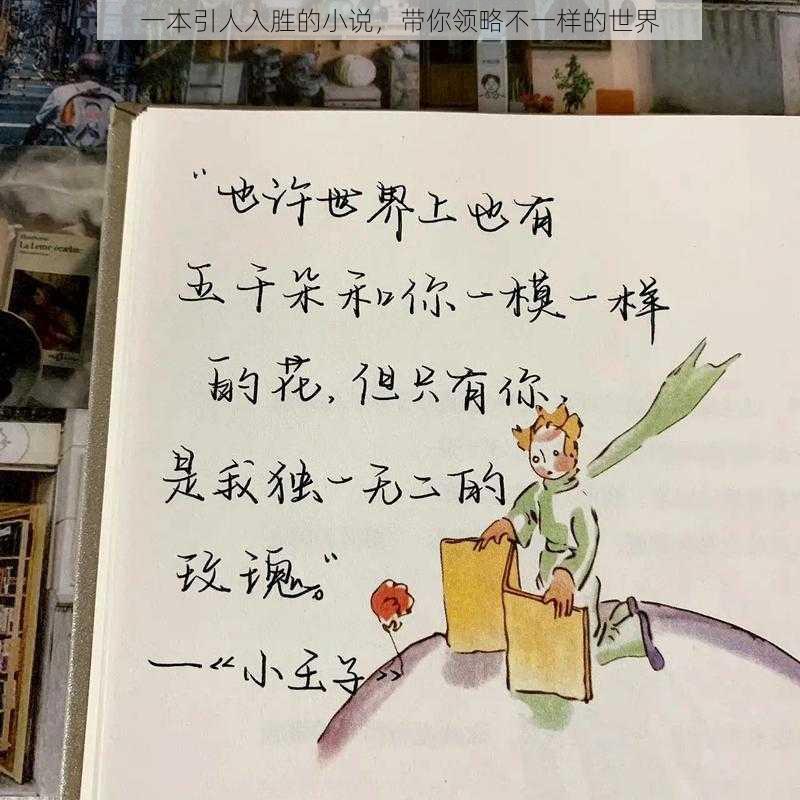 一本引人入胜的小说，带你领略不一样的世界
"也许世界上也有
五千朵和你一模一样
的花，但只有你，
是我独一无二的
玫瑰。"
—《小王子》